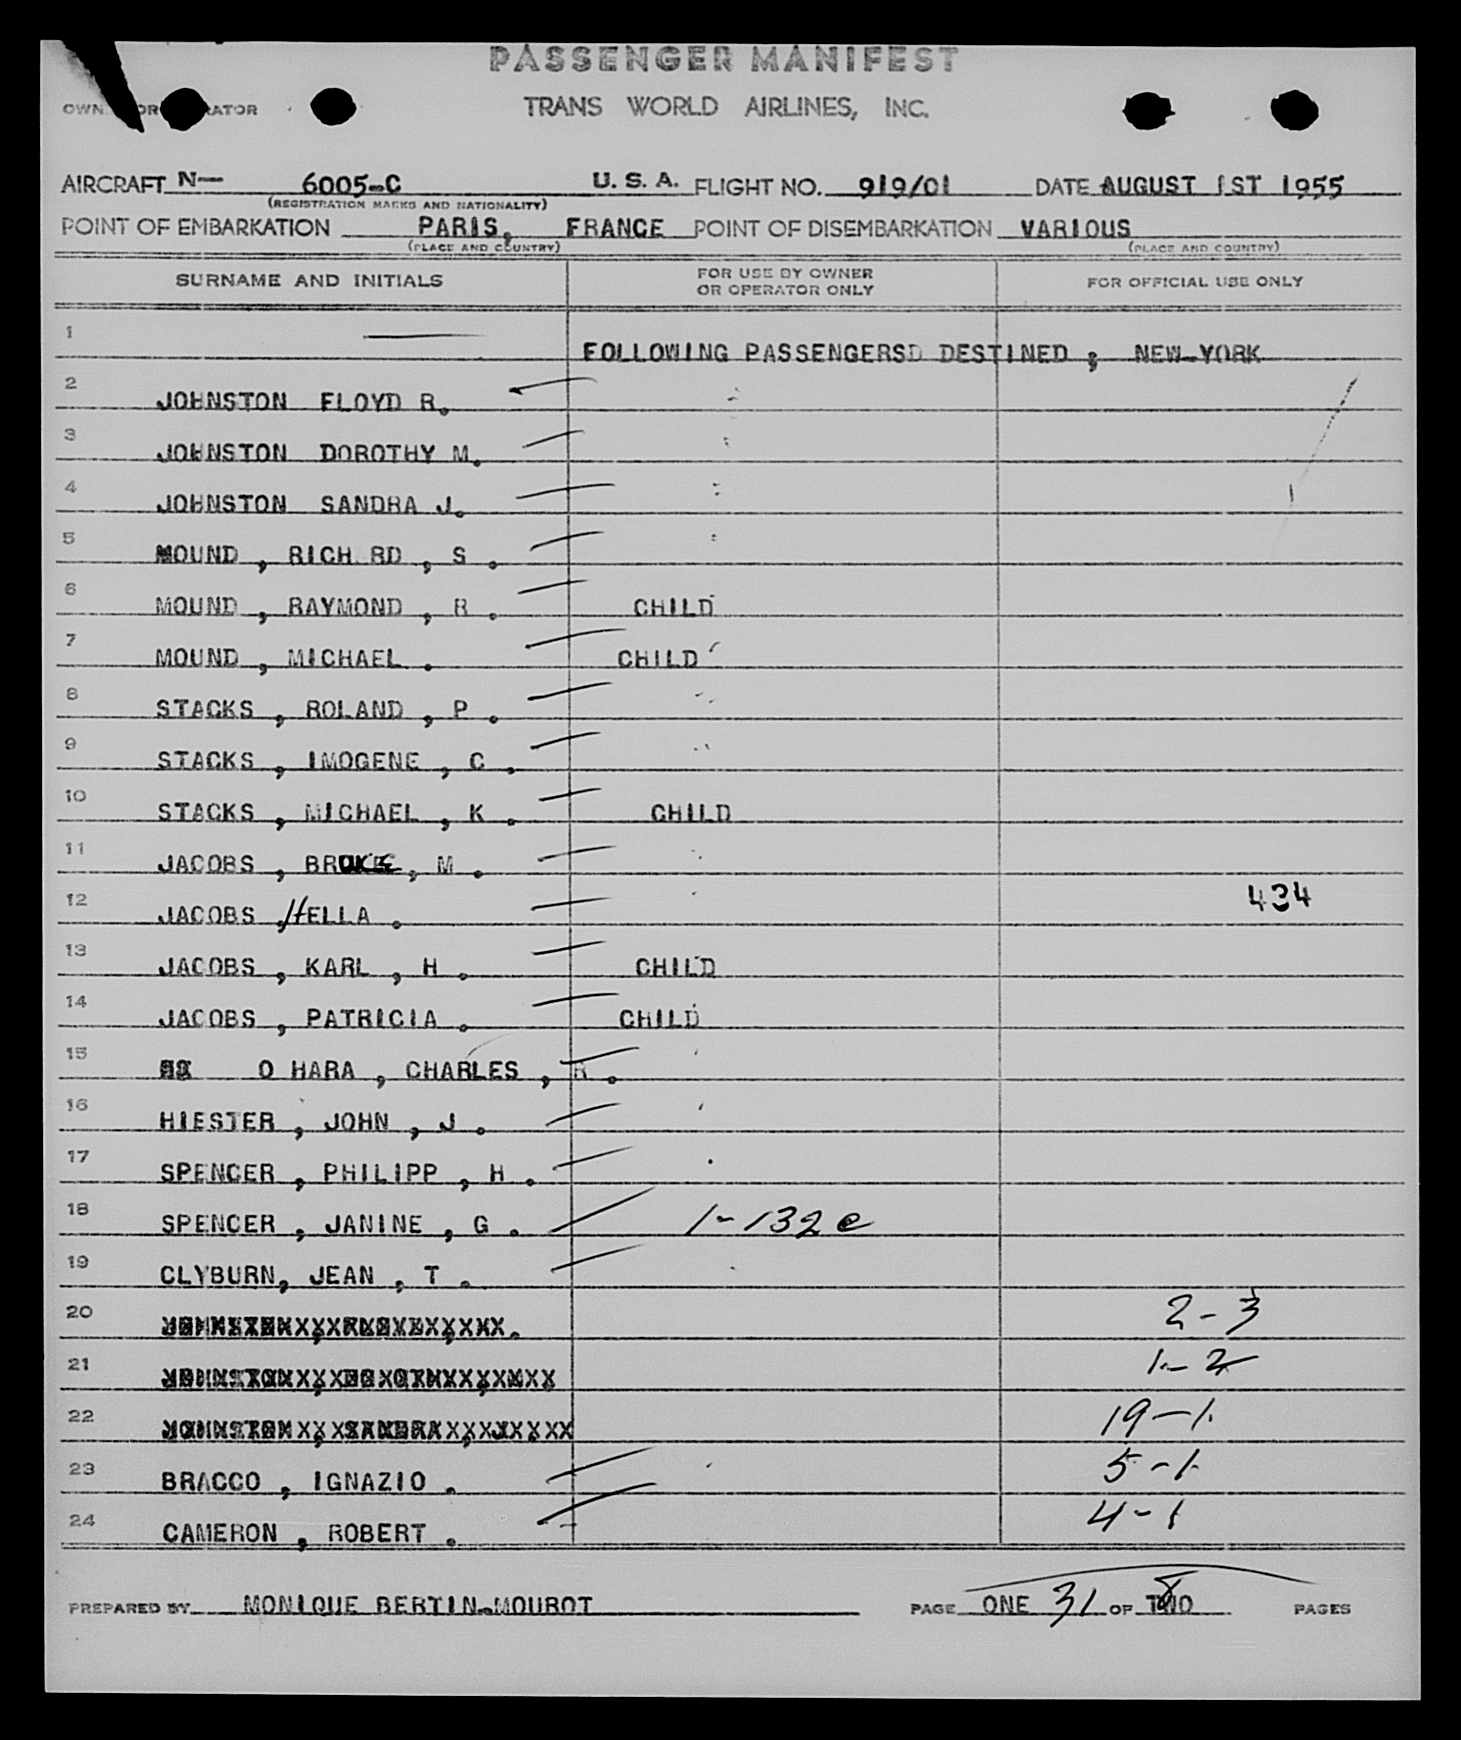 PASSENGER MANIFEST
TRANS WORLD AIRLINES, INC.
AIRCRAFT N- 6005-C U. S. A. FLIGHT NO. 919/01 DATE AUGUST 1ST 1955
(REGISTRATION MARKS AND NATIONALITY)
POINT OF EMBARKATION PARIS, FRANCE POINT OF DISEMBARKATION VARIOUS
(PLACE AND COUNTRY) (PLACE AND COUNTRY)
SURNAME AND INITIALS FOR USE BY OWNER OR OPERATOR ONLY FOR OFFICIAL USE ONLY
1 FOLLOWING PASSENGERSD DESTINED ; NEW-YORK
2 JOHNSTON FLOYD R.
3 JOHNSTON DOROTHY M.
4 JOHNSTON SANDRA J.
5 MOUND , RICH RD , S .
6 MOUND , RAYMOND , R . CHILD
7 MOUND , MICHAEL . CHILD
8 STACKS , ROLAND , P .
9 STACKS , IMOGENE , C .
10 STACKS , MICHAEL , K . CHILD
11 JACOBS , BR , M .
12 JACOBS , HELLA . 434
13 JACOBS , KARL , H . CHILD
14 JACOBS , PATRICIA . CHILD
15 O HARA , CHARLES , R .
16 HIESTER , JOHN , J .
17 SPENCER , PHILIPP , H .
18 SPENCER , JANINE , G . 1-132 e
19 CLYBURN, JEAN , T .
20 2-3
21 1-2
22 19-1
23 BRACCO , IGNAZIO . 5-1
24 CAMERON , ROBERT . 4-1
PREPARED BY MONIQUE BERTIN-MOUROT PAGE ONE 31 OF TWO 8 PAGES